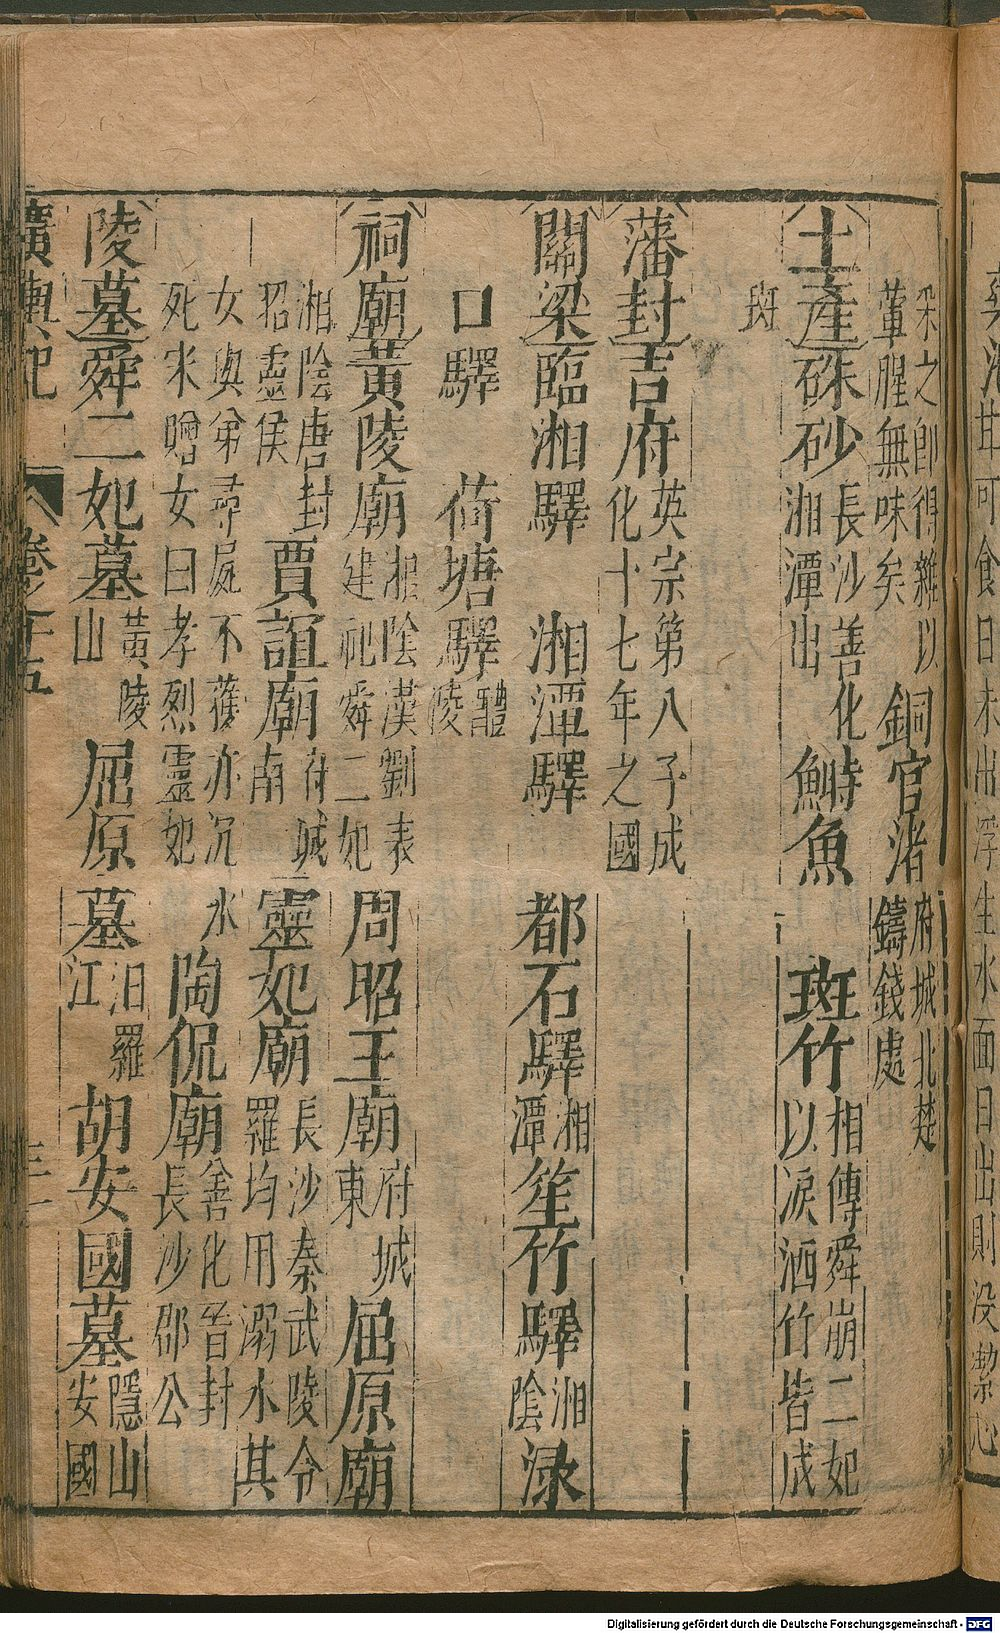 可食日未出浮生水面日出則没
采之即得雜以葷腥無味矣 銅官渚 府城北楚鑄錢處
土產 硃砂 長沙善化湘潭出 鰣魚 斑竹 相傳舜崩二妃以淚洒竹皆成
斑
藩封 吉府 英宗第八子成化十七年之國
關梁 臨湘驛 湘潭驛 都石驛 湘潭 笙竹驛 湘陰 渌
口驛 荷塘驛 醴陵
祠廟 黃陵廟 湘陰漢劉表建祀舜二妃 周昭王廟 府城東 屈原廟
湘陰唐封昭靈侯 賈誼廟 府城南 靈妃廟 長沙秦武陵令羅均用溺水其
女與弟尋屍不獲亦沉水死宋贈女曰孝烈靈妃 陶侃廟 善化晉封長沙郡公
陵墓 舜二妃墓 黃陵山 屈原墓 汨羅江 胡安國墓 隱山安國
廣輿記 卷之十五
Digitalisierung gefördert durch die Deutsche Forschungsgemeinschaft - DFG